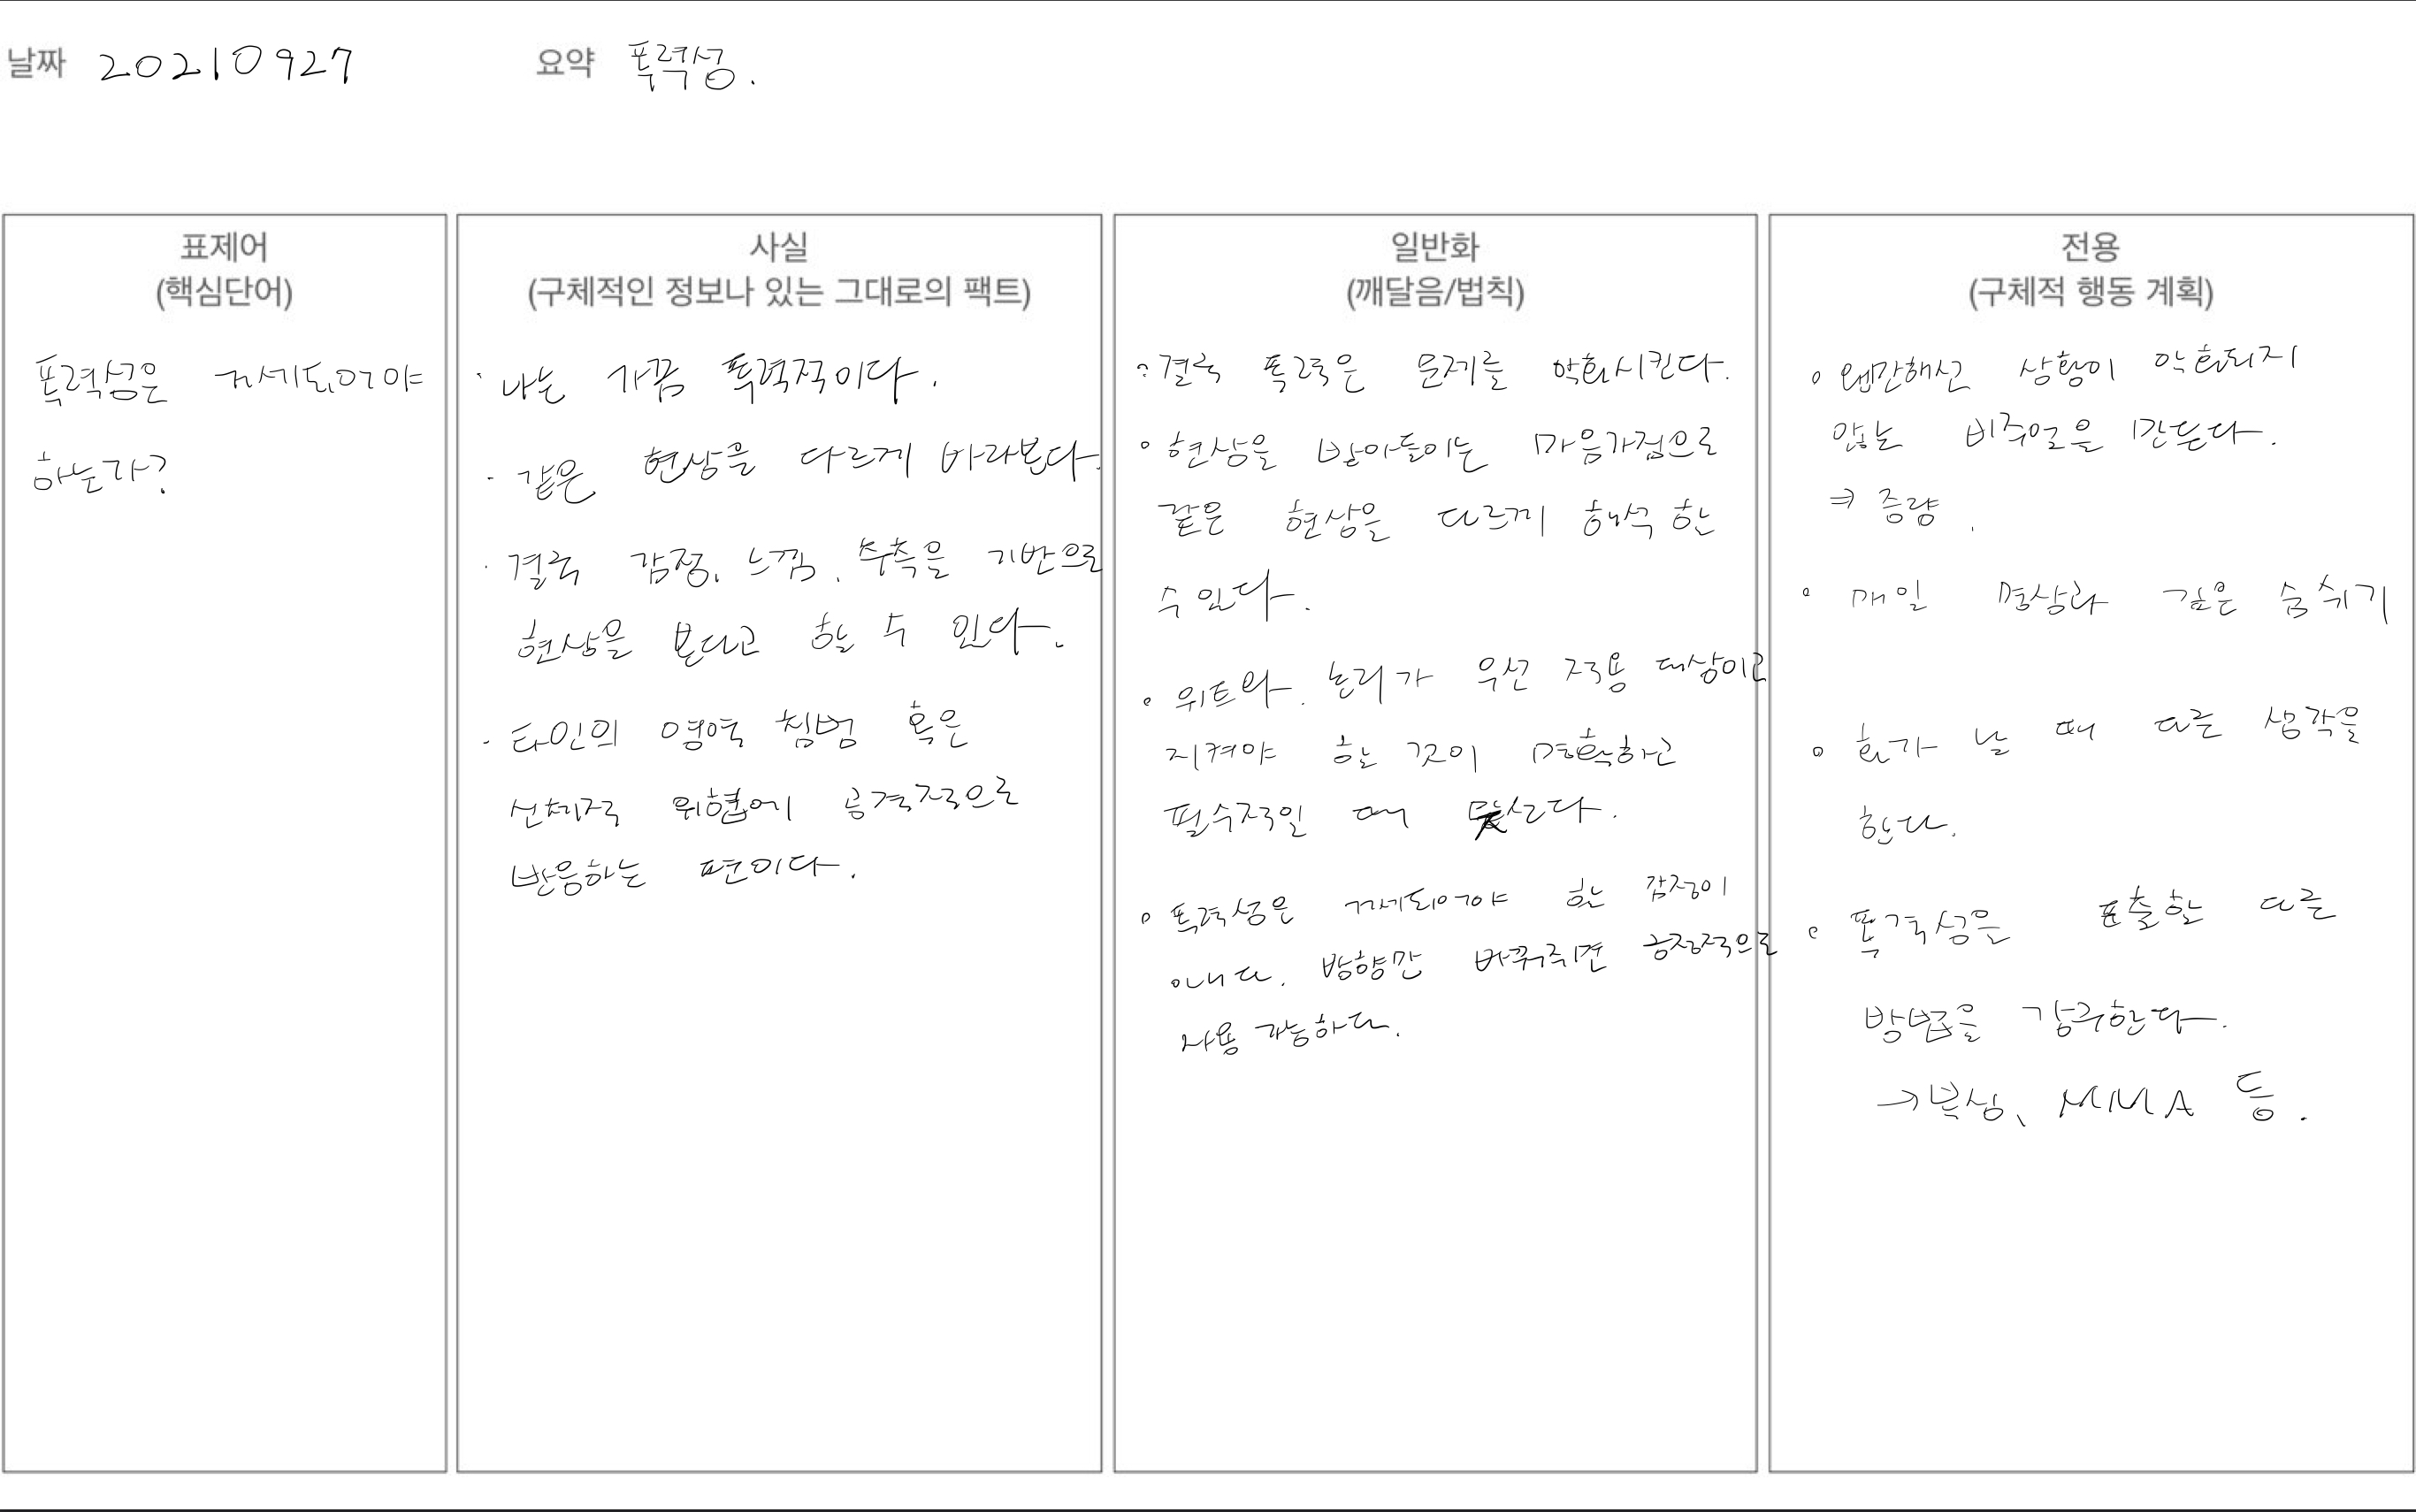 날짜 20210927 요약 폭력성.
표제어
(핵심단어)
폭력성은 거세되어야
하는가?
사실
(구체적인 정보나 있는 그대로의 팩트)
· 나는 가끔 폭력적이다.
· 같은 현상을 다르게 바라본다.
· 결국 감정, 느낌, 추측을 기반으로
현상을 본다고 할 수 있다.
· 타인의 영역 침범 혹은
신체적 위협에 공격적으로
반응하는 편이다.
일반화
(깨달음/법칙)
· 결국 폭력은 문제를 악화시킨다.
· 현상을 받아들이는 마음가짐으로
같은 현상을 다르게 해석 한
수 있다.
· 위트와, 논리가 우선 적용 대상이고
지켜야 할 것이 명확하고
필수적일 때 쓴다.
· 폭력성은 거세되어야 할 감정이
아니다. 방향만 바꿔주면 긍정적으로
사용 가능하다.
전용
(구체적 행동 계획)
· 웬간해선 상황이 악화되지
않는 비주얼을 만든다.
⇒ 증량.
· 매일 명상과 깊은 숨쉬기
· 화가 날 때 다른 생각을
한다.
· 폭력성을 표출할 다른
방법을 강구한다.
→ 복싱, MMA 등.